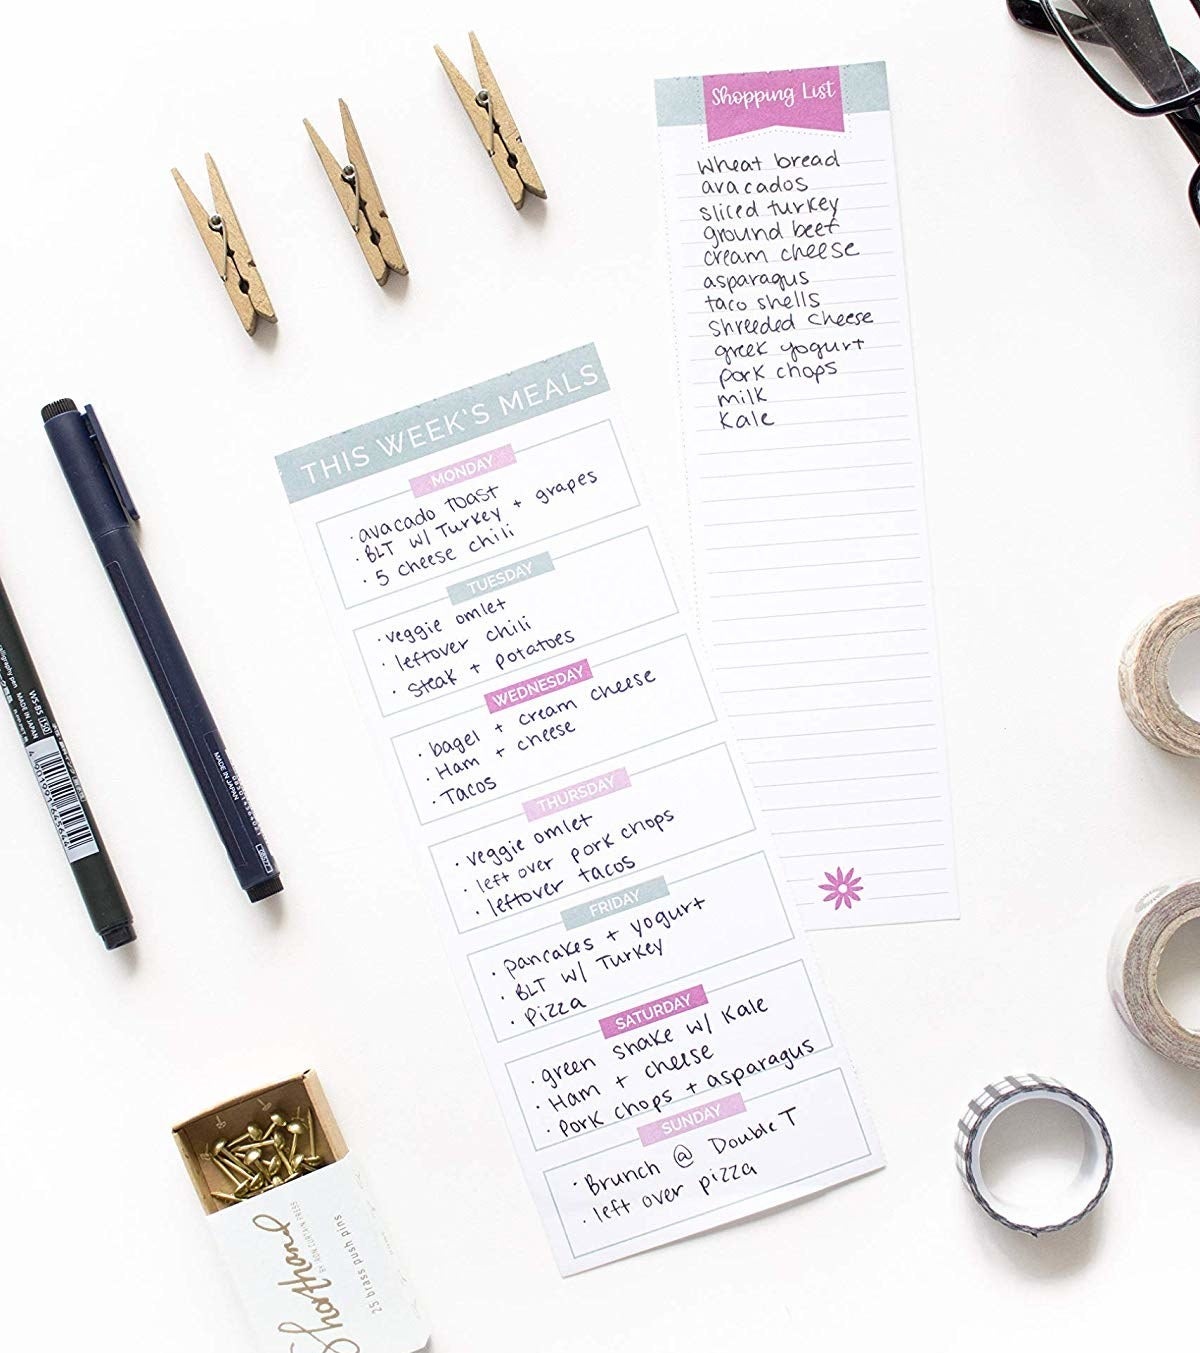 Shopping List
wheat bread
avacados
sliced turkey
ground beef
cream cheese
asparagus
taco shells
shreeded cheese
greek yogurt
pork chops
milk
Kale
THIS WEEK'S MEALS
MONDAY
· avacado toast
· BLT w/ Turkey + grapes
· 5 cheese chili
TUESDAY
· veggie omlet
· leftover chili
· steak + potatoes
WEDNESDAY
· bagel + cream cheese
· Ham + cheese
· Tacos
THURSDAY
· veggie omlet
· left over pork chops
· leftover tacos
FRIDAY
· pancakes + yogurt
· BLT w/ Turkey
· Pizza
SATURDAY
· green shake w/ Kale
· Ham + cheese
· Pork chops + asparagus
SUNDAY
· Brunch @ Double T
· left over pizza
MADE IN JAPAN
WS-BS 150
MADE IN JAPAN
4901991645644
Shorthand
25 brass push pins